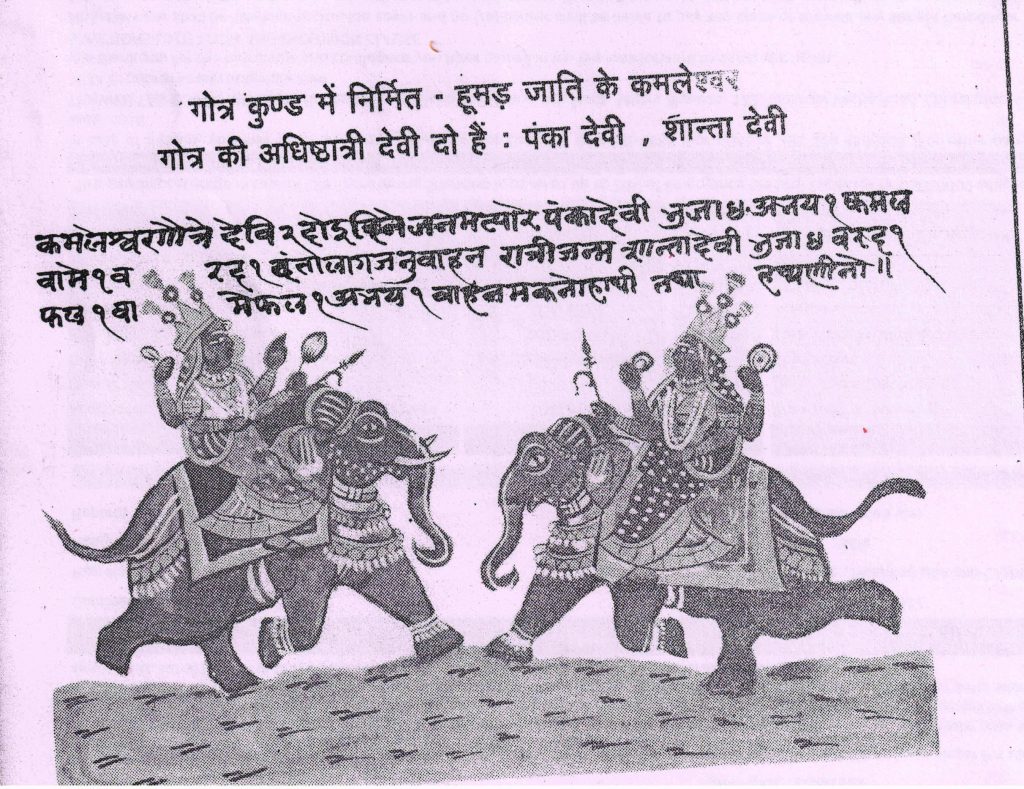 गोत्र कुण्ड में निर्मित - हूमड़ जाति के कमलेश्वर
गोत्र की अधिष्ठात्री देवी दो हैं : पंका देवी , शान्ता देवी
कमलेश्वरगोत्रे देवि २ जनम पंकादेवी भुजा ४ अजय १ कमल
वामे १ व रद १ रात्रीजन्म शान्तादेवी भुजा ४ वरद १
फल १ वा मेफल १ अजय १ वाहन हाथी तथा